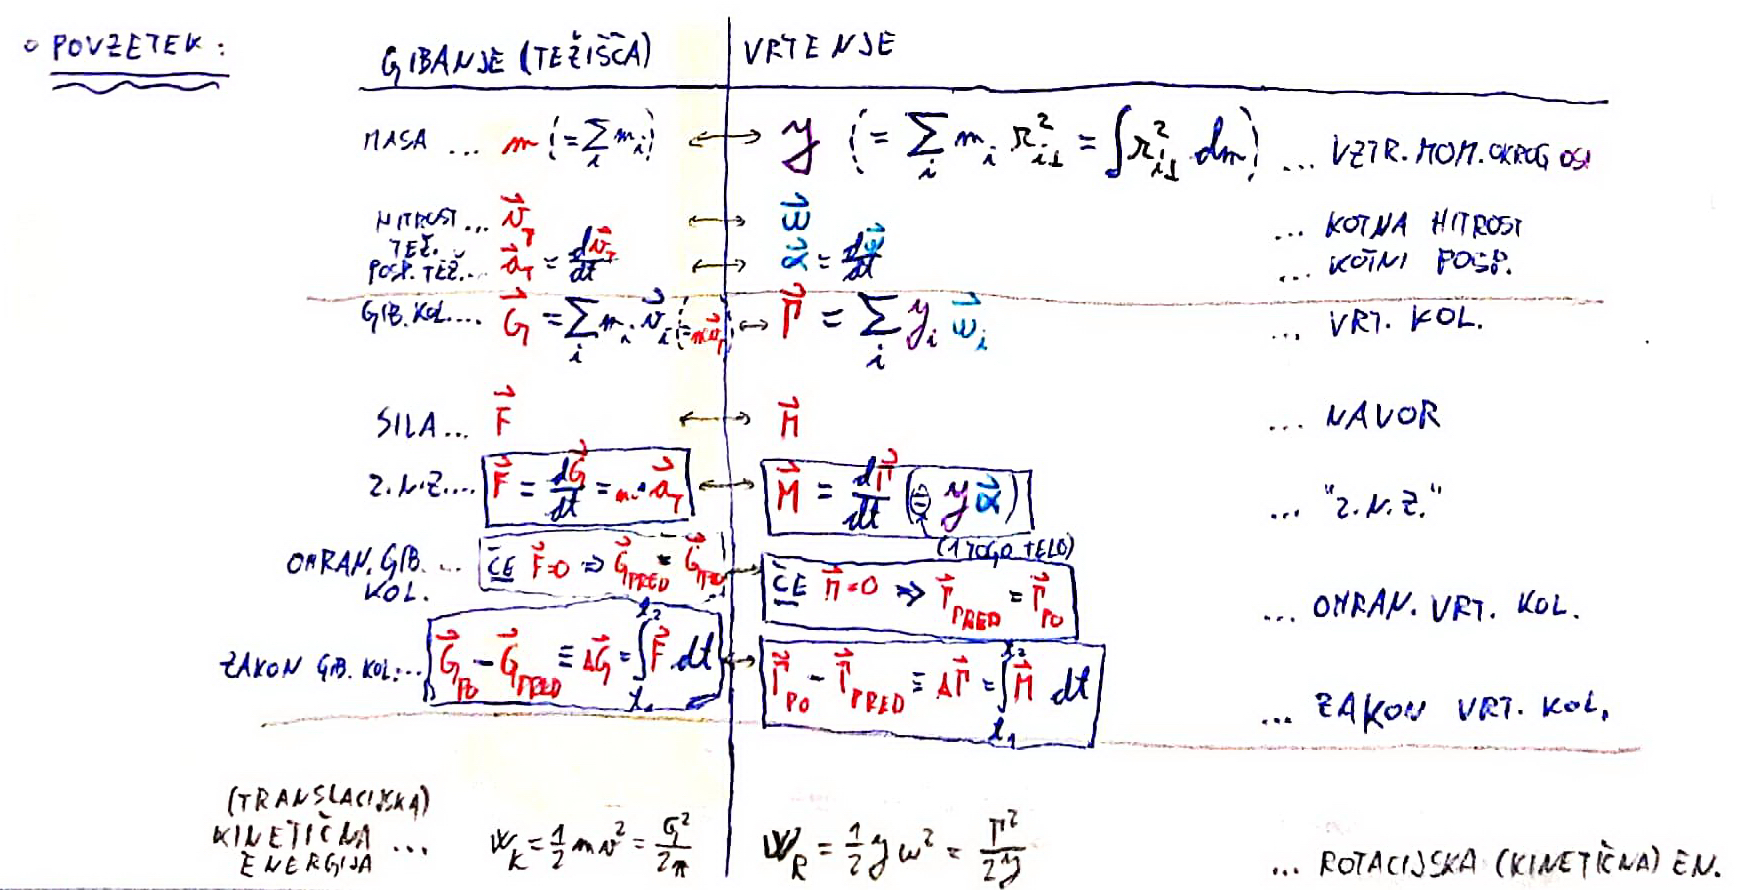 ° POVZETEK:
GIBANJE (TEŽIŠČA) | VRTENJE
MASA ... m (= ∑_i m_i) ↔ y (= ∑_i m_i r²_i⊥ = ∫ r²_i⊥ dm) ... VZTR. MOM. OKROG OSI
HITROST TEŽ. ... v⃗_T ↔ ω⃗ ... KOTNA HITROST
POSP. TEŽ. ... a⃗_T = dv⃗_T/dt ↔ α⃗ = dω⃗/dt ... KOTNI POSP.
GIB. KOL. ... G⃗ = ∑_i m_i v⃗_i (= m v⃗_T) ↔ Γ⃗ = ∑_i y_i ω⃗_i ... VRT. KOL.
SILA ... F⃗ ↔ M⃗ ... NAVOR
2.N.Z. ... F⃗ = dG⃗/dt = m · a⃗_T ↔ M⃗ = dΓ⃗/dt (= y α⃗) ... "2.N.Z."
(1 TOGO TELO)
OHRAN. GIB. KOL. ... ČE F⃗=0 ⇒ G⃗_PRED = G⃗_PO ↔ ČE M⃗=0 ⇒ Γ⃗_PRED = Γ⃗_PO ... OHRAN. VRT. KOL.
ZAKON GIB. KOL. ... G⃗_PO - G⃗_PRED ≡ ΔG⃗ = ∫_t₁^t₂ F⃗ dt ↔ Γ⃗_PO - Γ⃗_PRED ≡ ΔΓ⃗ = ∫_t₁^t₂ M⃗ dt ... ZAKON VRT. KOL.
(TRANSLACIJSKA)
KINETIČNA ENERGIJA ... W_K = 1/2 m v² = G²/2m | W_R = 1/2 y ω² = Γ²/2y ... ROTACIJSKA (KINETIČNA) EN.